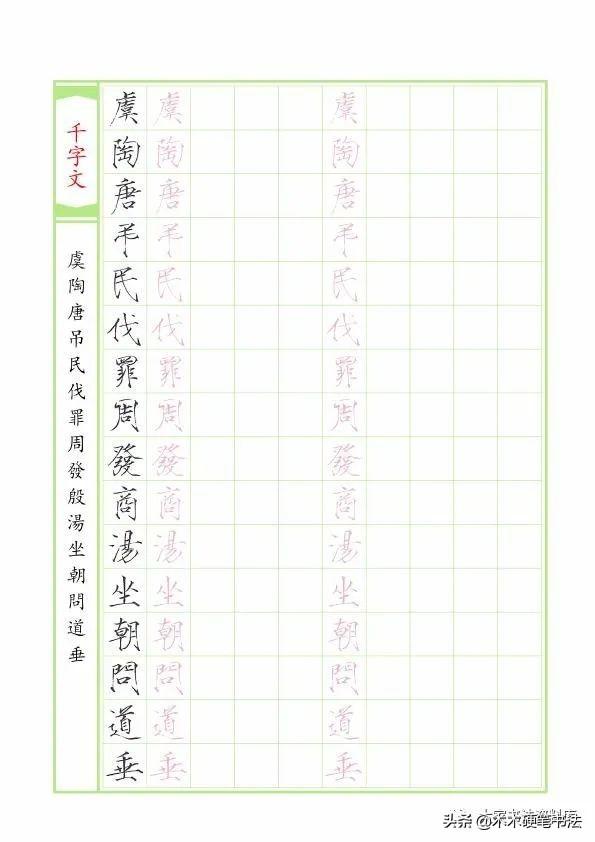 千字文
虞陶唐吊民伐罪周發殷湯坐朝問道垂
虞陶唐弔民伐罪周發商湯坐朝問道垂
虞陶唐弔民伐罪周發商湯坐朝問道垂
虞陶唐弔民伐罪周發商湯坐朝問道垂
头条 @木木硬笔书法